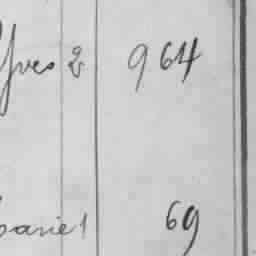 Yves 2 964
Marie 1 69